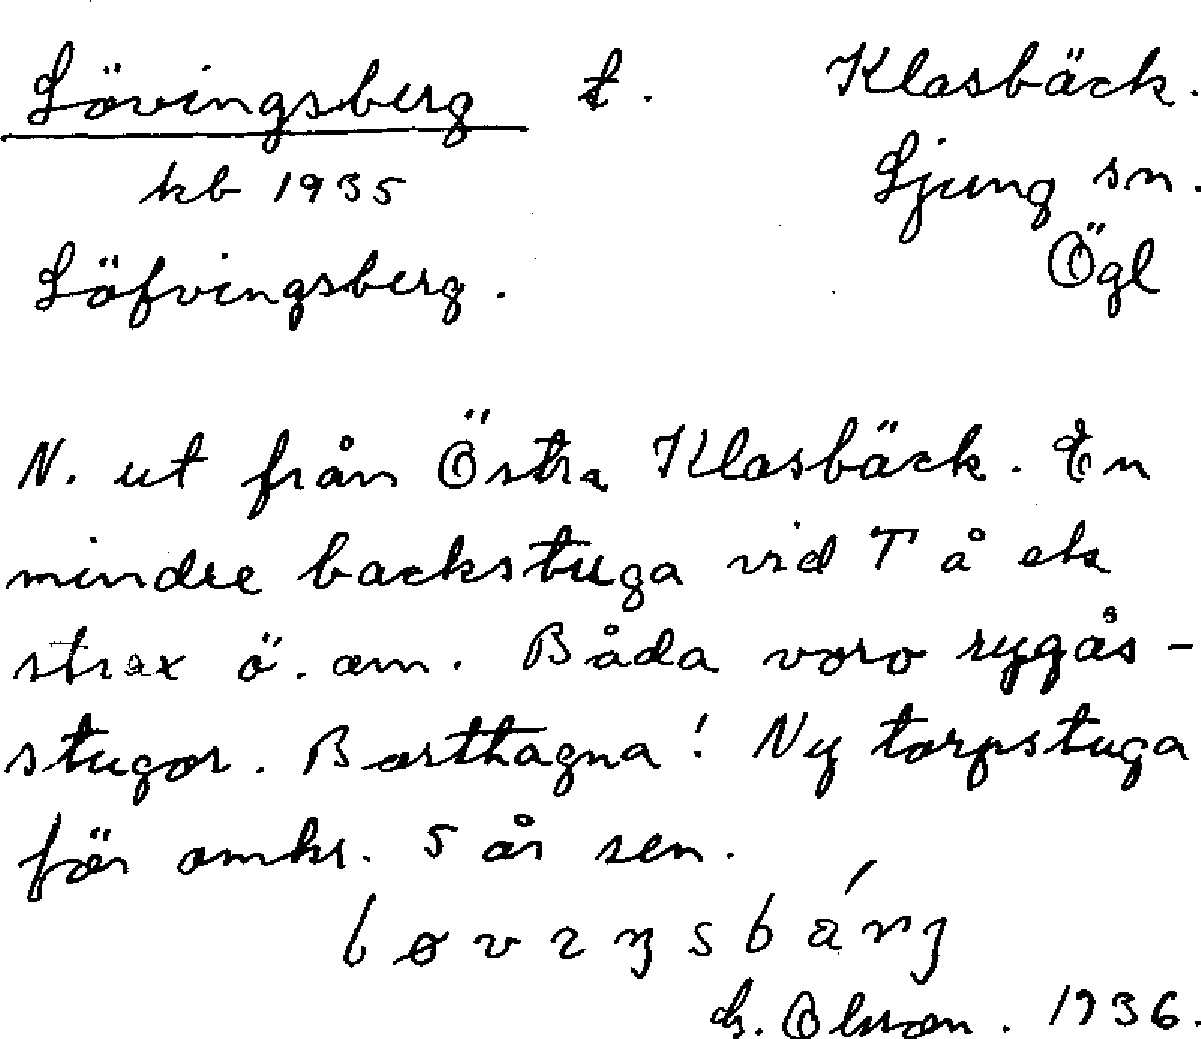 Lövingsberg t. Klasbäck.
kb 1935 Ljung sn.
Löfvingsberg. Ögl
N. ut från Östra Klasbäck. En
mindre backstuga vid T å ek
strax ö. om. Båda voro rygås-
stugor. Borttagna! Ny torpstuga
för omkr. 5 år sen.
Olsson. 1936.